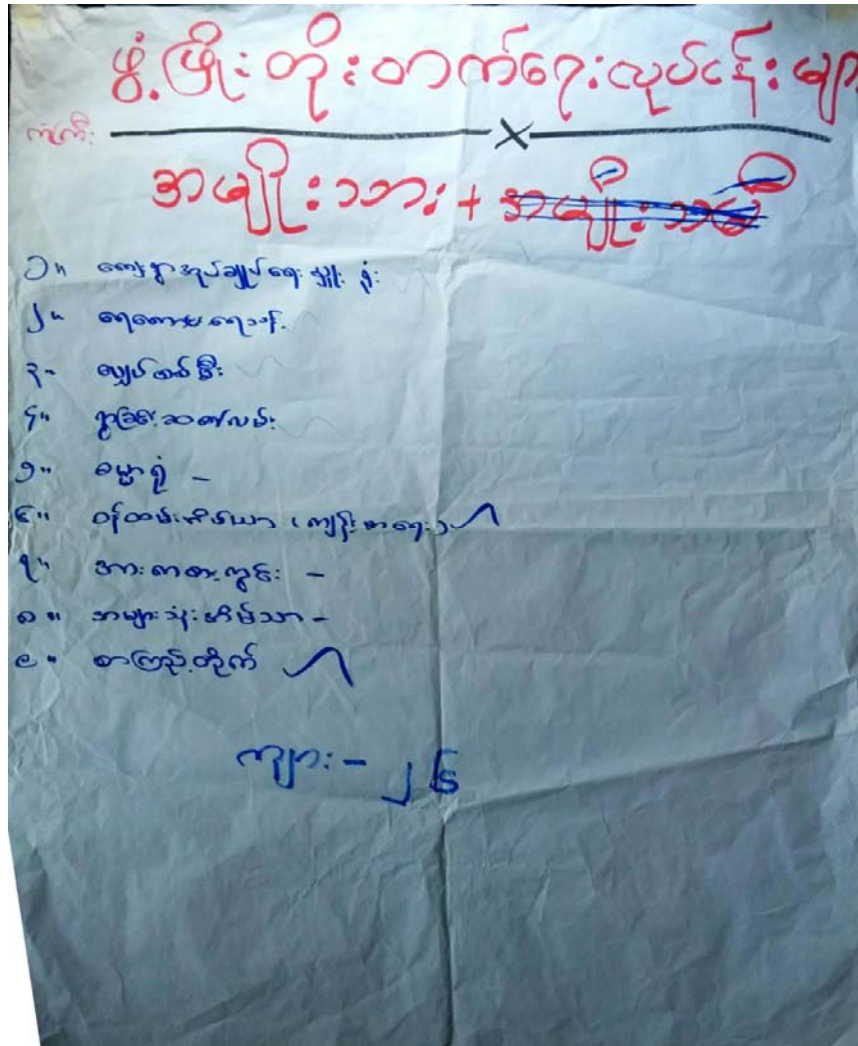 ဖွံ့ဖြိုးတိုးတက်ရေးလုပ်ငန်းများ
ကံကြီး
အမျိုးသား + အမျိုးသမီး
၁။ ကျေးရွာအုပ်ချုပ်ရေးမှူးရုံး
၂။ ရေကောမရေသန့်
၃။ လျှပ်စစ်မီး
၄။ ရွာချင်းဆက်လမ်း
၅။ ဓမ္မာရုံ -
၆။ ဝန်ထမ်းအိမ်ယာ (ကျန်းမာရေး)
၇။ အားကစားကွင်း -
၈။ အများသုံးအိမ်သာ -
၉။ စာကြည့်တိုက်
ကျား - ၂၆